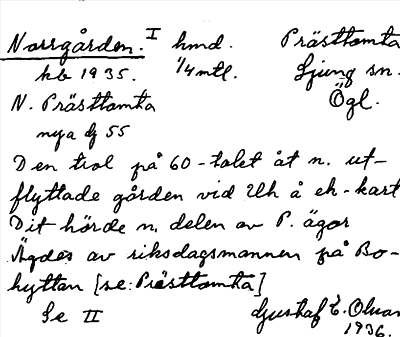 Norrgården. I hmd. Prästtomta
kb 1935. 1/4 mtl. Ljung sn.
N. Prästtomta Ögl.
nya dj 55
Den trol på 60-talet åt n. ut-
flyttade gården vid Uh å ek-kart
Dit hörde n. delen av P. ägor
Ägdes av riksdagsmannen på Bo-
hyttan [se: Prästtomta]
Se II Gustaf E. Olsson
1936.